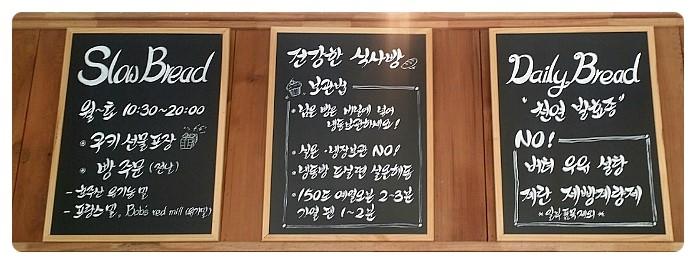 Slow Bread
월~토 10:30~20:00
쿠키 선물포장
빵 주문 (전날)
- 호주산 유기농 밀
- 프랑스 밀, Bob's red mill (유기밀)
건강한 식사빵
보관법
· 남은 빵은 비닐에 넣어
냉동보관하세요!
· 실온·냉장보관 NO!
· 냉동빵 드실땐 실온해동
· 150도 예열오븐 2~3분
가열 팬 1~2분
Daily Bread
"천연 발효종"
NO!
버터 우유 설탕
계란 제빵개량제
* 일부품목제외 *